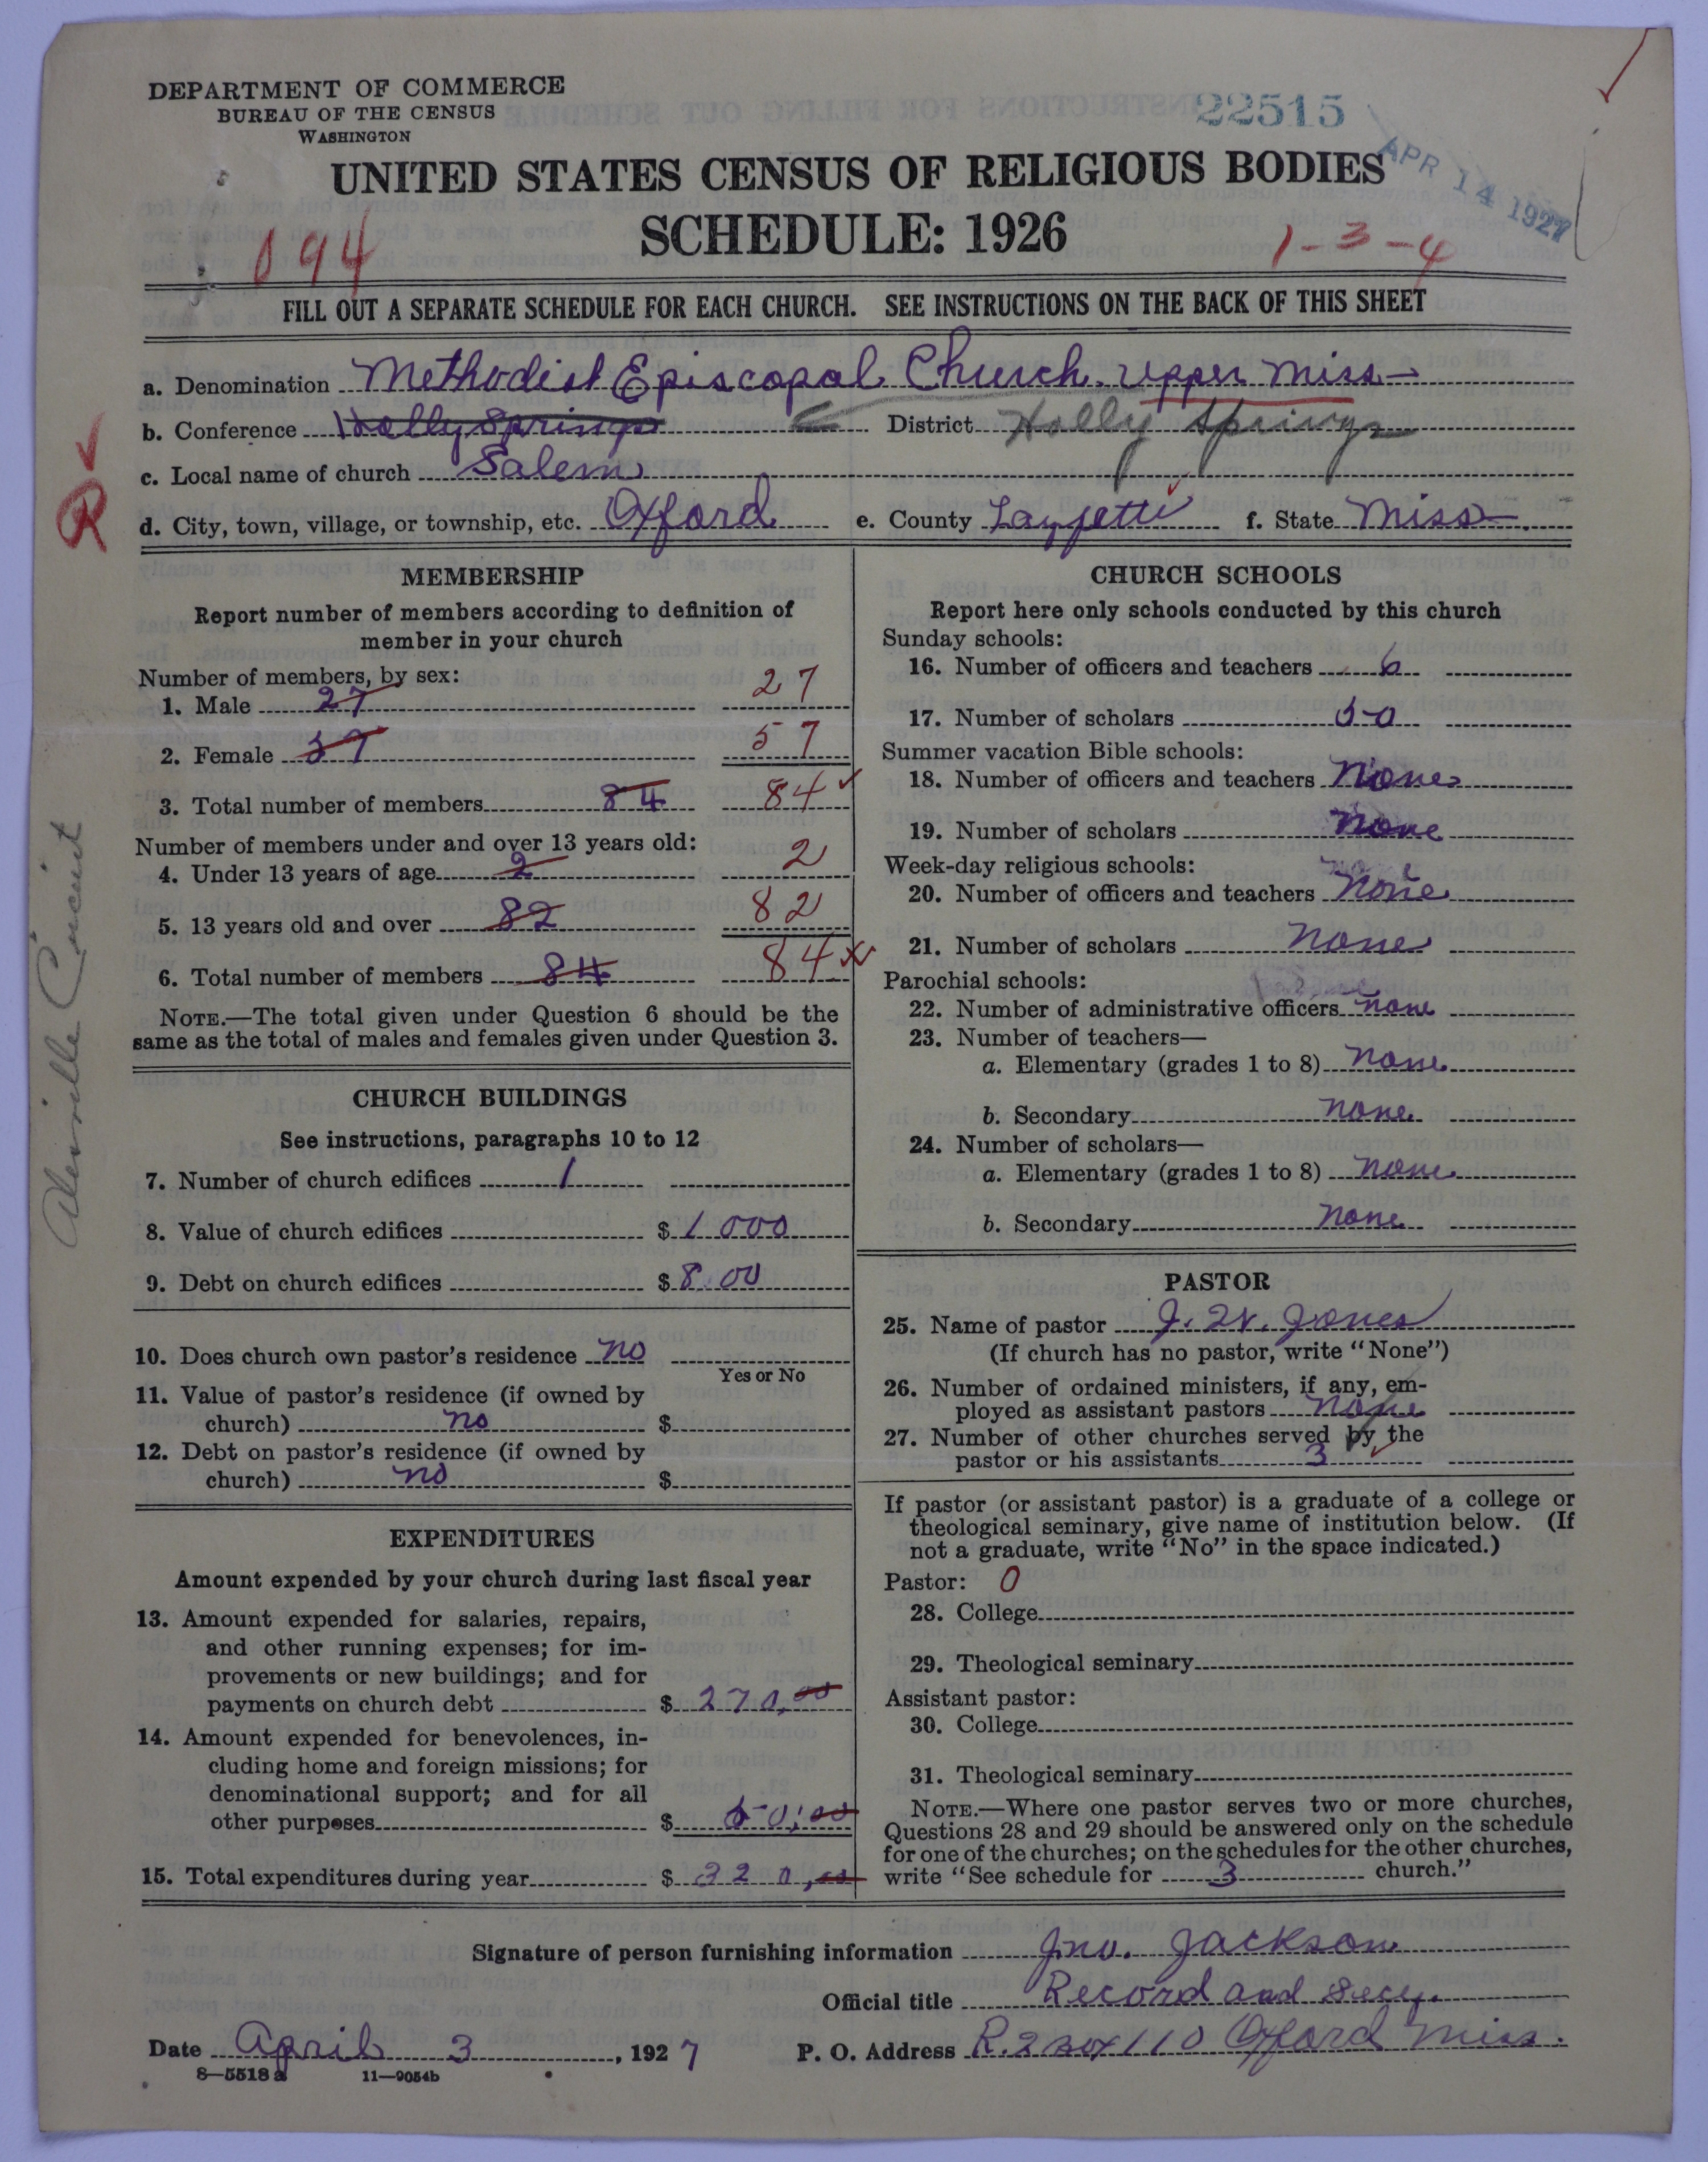 DEPARTMENT OF COMMERCE
BUREAU OF THE CENSUS
WASHINGTON
22515
APR 14 1927
UNITED STATES CENSUS OF RELIGIOUS BODIES
SCHEDULE: 1926
094
1-3-4
FILL OUT A SEPARATE SCHEDULE FOR EACH CHURCH. SEE INSTRUCTIONS ON THE BACK OF THIS SHEET
a. Denomination Methodist Episcopal Church. Upper Miss
b. Conference Holly Springs District Holly Springs
c. Local name of church Salem
R
d. City, town, village, or township, etc. Oxford e. County Layfette f. State Miss
MEMBERSHIP
Report number of members according to definition of
member in your church
Number of members, by sex:
1. Male 27 27
2. Female 57 57
3. Total number of members 84 84
Number of members under and over 13 years old:
4. Under 13 years of age 2 2
5. 13 years old and over 82 82
6. Total number of members 84 84
NOTE.—The total given under Question 6 should be the
same as the total of males and females given under Question 3.
Circuit
CHURCH BUILDINGS
See instructions, paragraphs 10 to 12
7. Number of church edifices 1
8. Value of church edifices $ 1000
9. Debt on church edifices $ 8.00
10. Does church own pastor's residence no
Yes or No
11. Value of pastor's residence (if owned by
church) no $
12. Debt on pastor's residence (if owned by
church) no $
EXPENDITURES
Amount expended by your church during last fiscal year
13. Amount expended for salaries, repairs,
and other running expenses; for im-
provements or new buildings; and for
payments on church debt $ 270.00
14. Amount expended for benevolences, in-
cluding home and foreign missions; for
denominational support; and for all
other purposes $ 50.00
15. Total expenditures during year $ 320.00
CHURCH SCHOOLS
Report here only schools conducted by this church
Sunday schools:
16. Number of officers and teachers 6
17. Number of scholars 50
Summer vacation Bible schools:
18. Number of officers and teachers None
19. Number of scholars None
Week-day religious schools:
20. Number of officers and teachers None
21. Number of scholars None
Parochial schools:
22. Number of administrative officers None
23. Number of teachers—
a. Elementary (grades 1 to 8) None
b. Secondary None
24. Number of scholars—
a. Elementary (grades 1 to 8) None
b. Secondary None
PASTOR
25. Name of pastor J. W. Jones
(If church has no pastor, write "None")
26. Number of ordained ministers, if any, em-
ployed as assistant pastors None
27. Number of other churches served by the
pastor or his assistants 3
If pastor (or assistant pastor) is a graduate of a college or
theological seminary, give name of institution below. (If
not a graduate, write "No" in the space indicated.)
Pastor: 0
28. College
29. Theological seminary
Assistant pastor:
30. College
31. Theological seminary
NOTE.—Where one pastor serves two or more churches,
Questions 28 and 29 should be answered only on the schedule
for one of the churches; on the schedules for the other churches,
write "See schedule for 3 church."
Signature of person furnishing information Jno. Jackson
Official title Record and Secy.
Date April 3, 1927 P. O. Address R. 2 Box 110 Oxford Miss.
8—5518 a 11—9054b